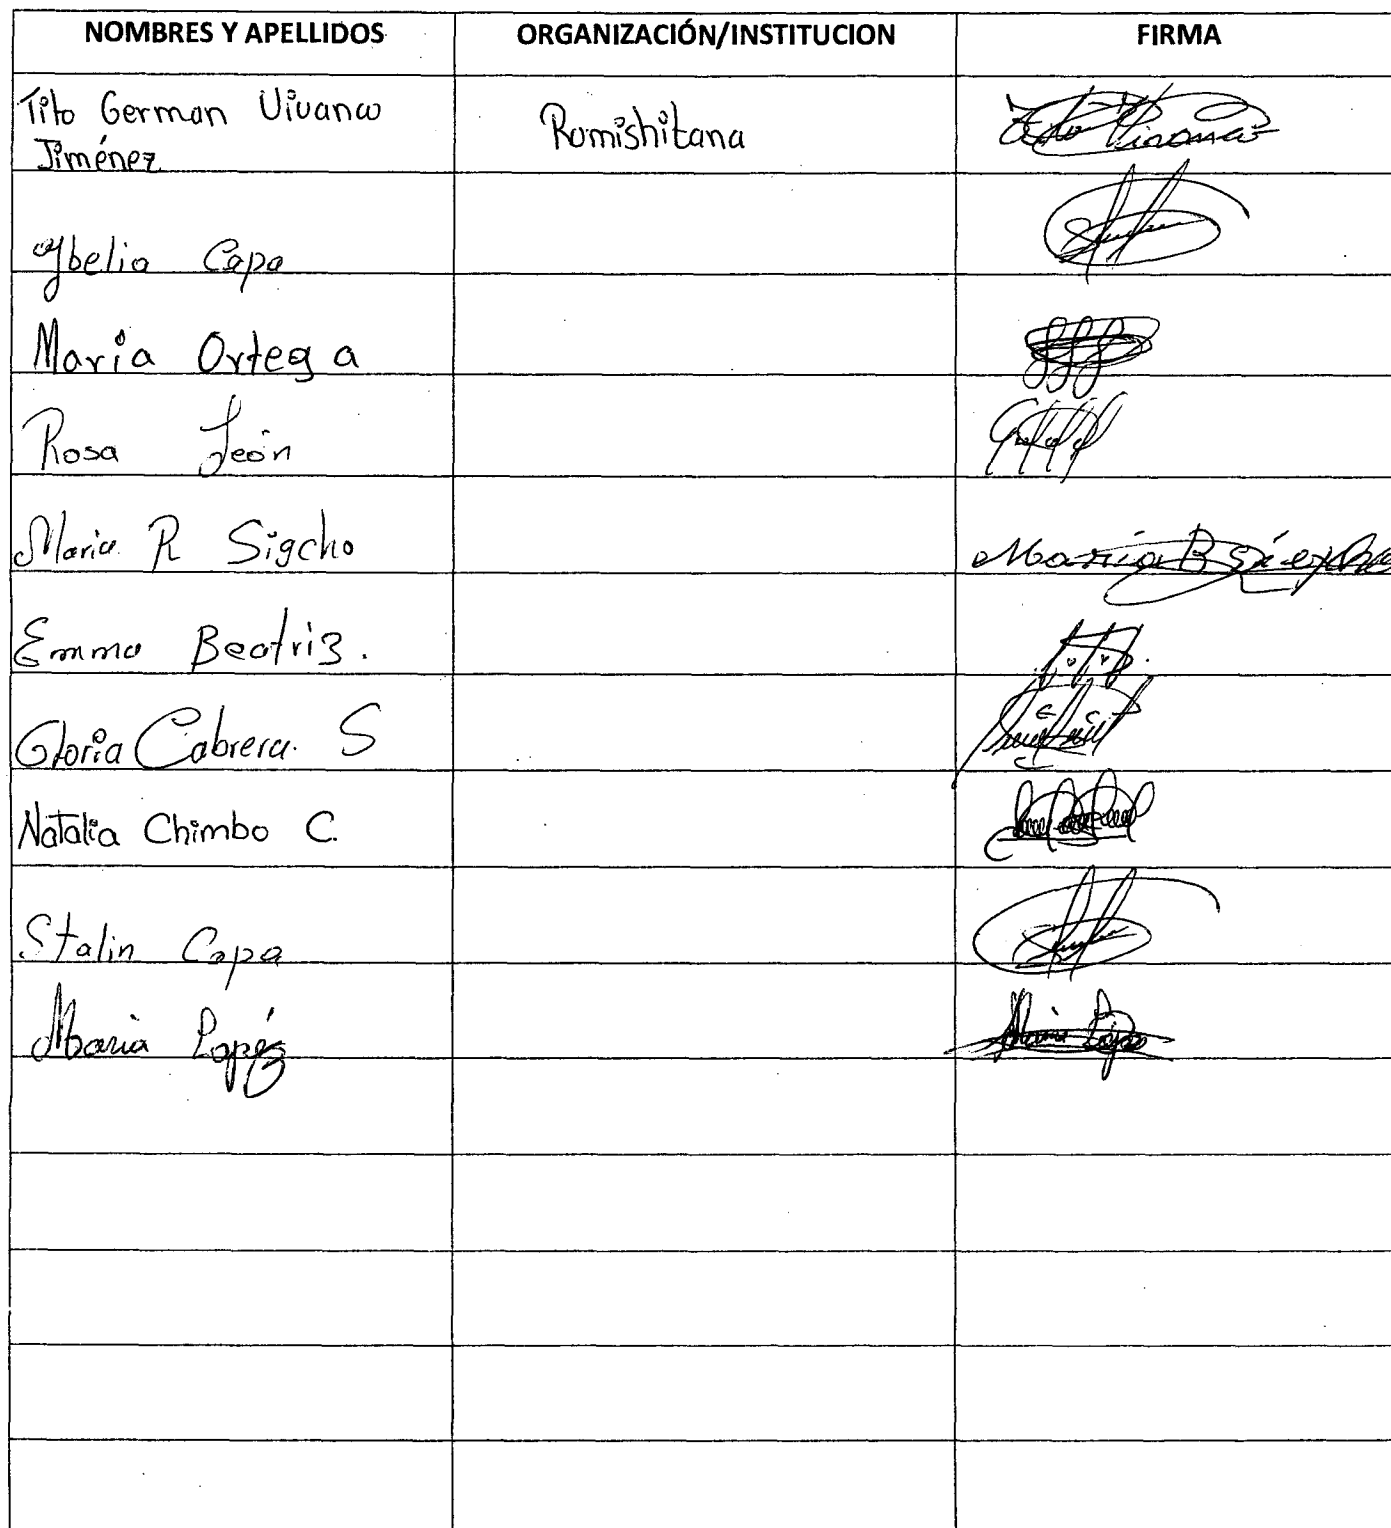 NOMBRES Y APELLIDOS ORGANIZACIÓN/INSTITUCION FIRMA
Tito German Vivanco
Jiménez
Romishitana
Tito Vivanco
Capa
María Ortega
Rosa León
Maria R Sigcho
Emma Beatriz.
Gloria Cabrera. S
Natalia Chimbo C.
Stalin Capa
Maria Lopéz
Maria Lopéz